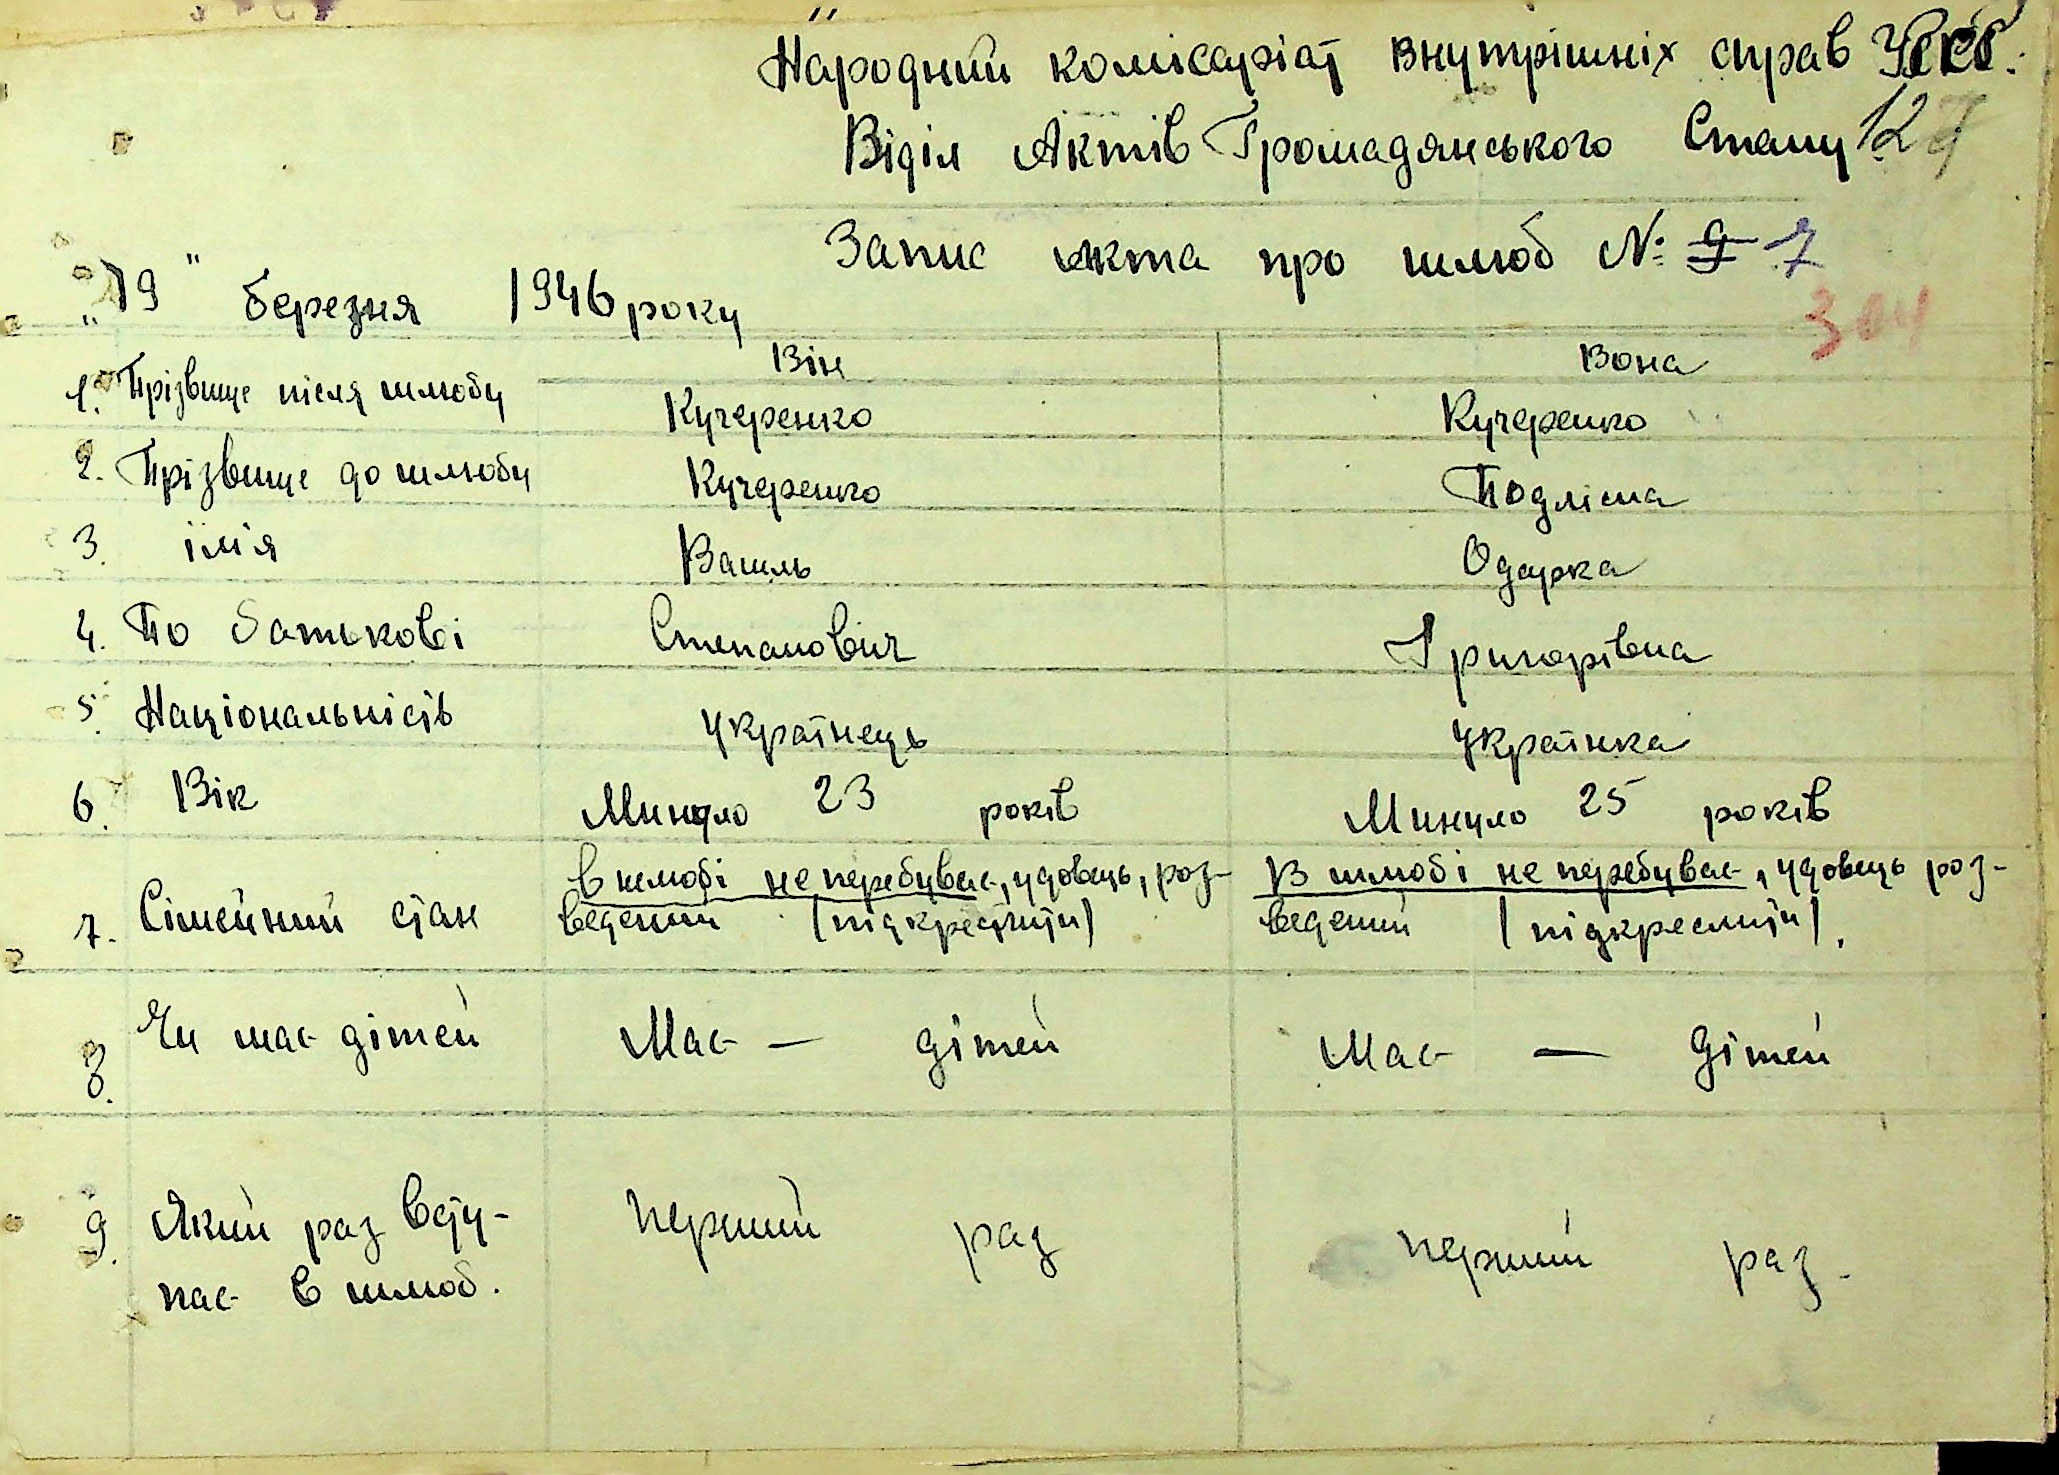 Народний комісаріат внутрішніх справ
Віділ Актів Громадянського Стану 127
Запис акта про шлюб №: 9 7
304
"19" березня 1946 року
Він Вона
1. Прізвище після шлюбу Кучеренко Кучеренко
2. Прізвище до шлюбу Кучеренко Подлісна
3. імія Василь Одарка
4. По батькові Степановіч Григорівна
5. Національність Українець Українка
6. Вік Минуло 23 років Минуло 25 років
7. Сімейний стан в шлюбі не перебуває, удовець, роз- В шлюбі не перебуває, удовець роз-
ведений (підкреслити) ведений (підкреслити).
8. Чи має дітей Має — дітей Має — дітей
9. Який раз всту- Перший раз перший раз.
пає в шлюб.